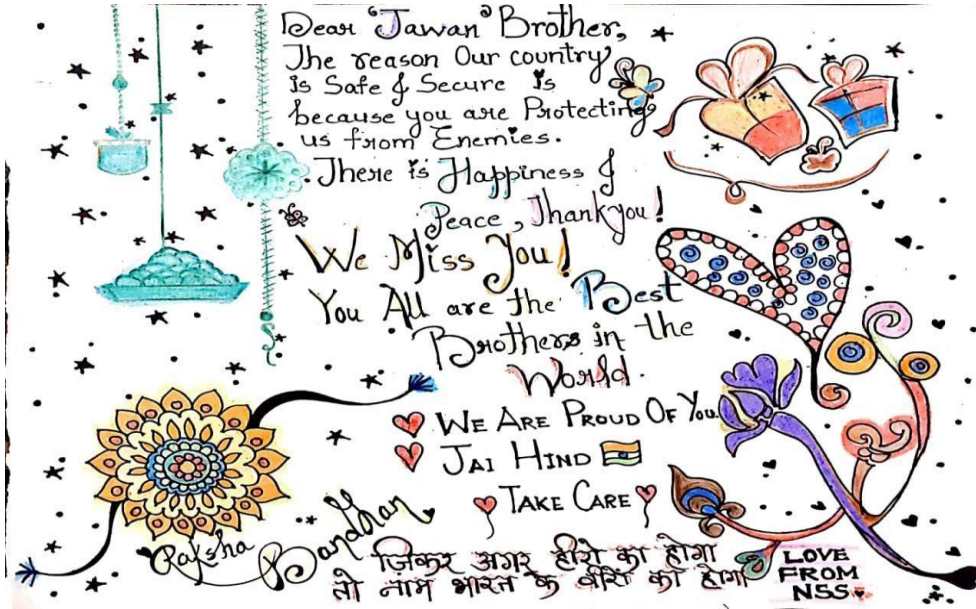 Dear "Jawan" Brother,
The reason Our country
is Safe & Secure is
because you are Protecting
us from Enemies.
There is Happiness &
Peace, Thankyou!
We Miss You!
You All are the Best
Brothers in the
World.
WE ARE PROUD OF YOU.
JAI HIND
TAKE CARE
Raksha Bandhan
ज़िकर अगर हीरो का होगा
तो नाम भारत के वीरों का होगा
LOVE
FROM
NSS